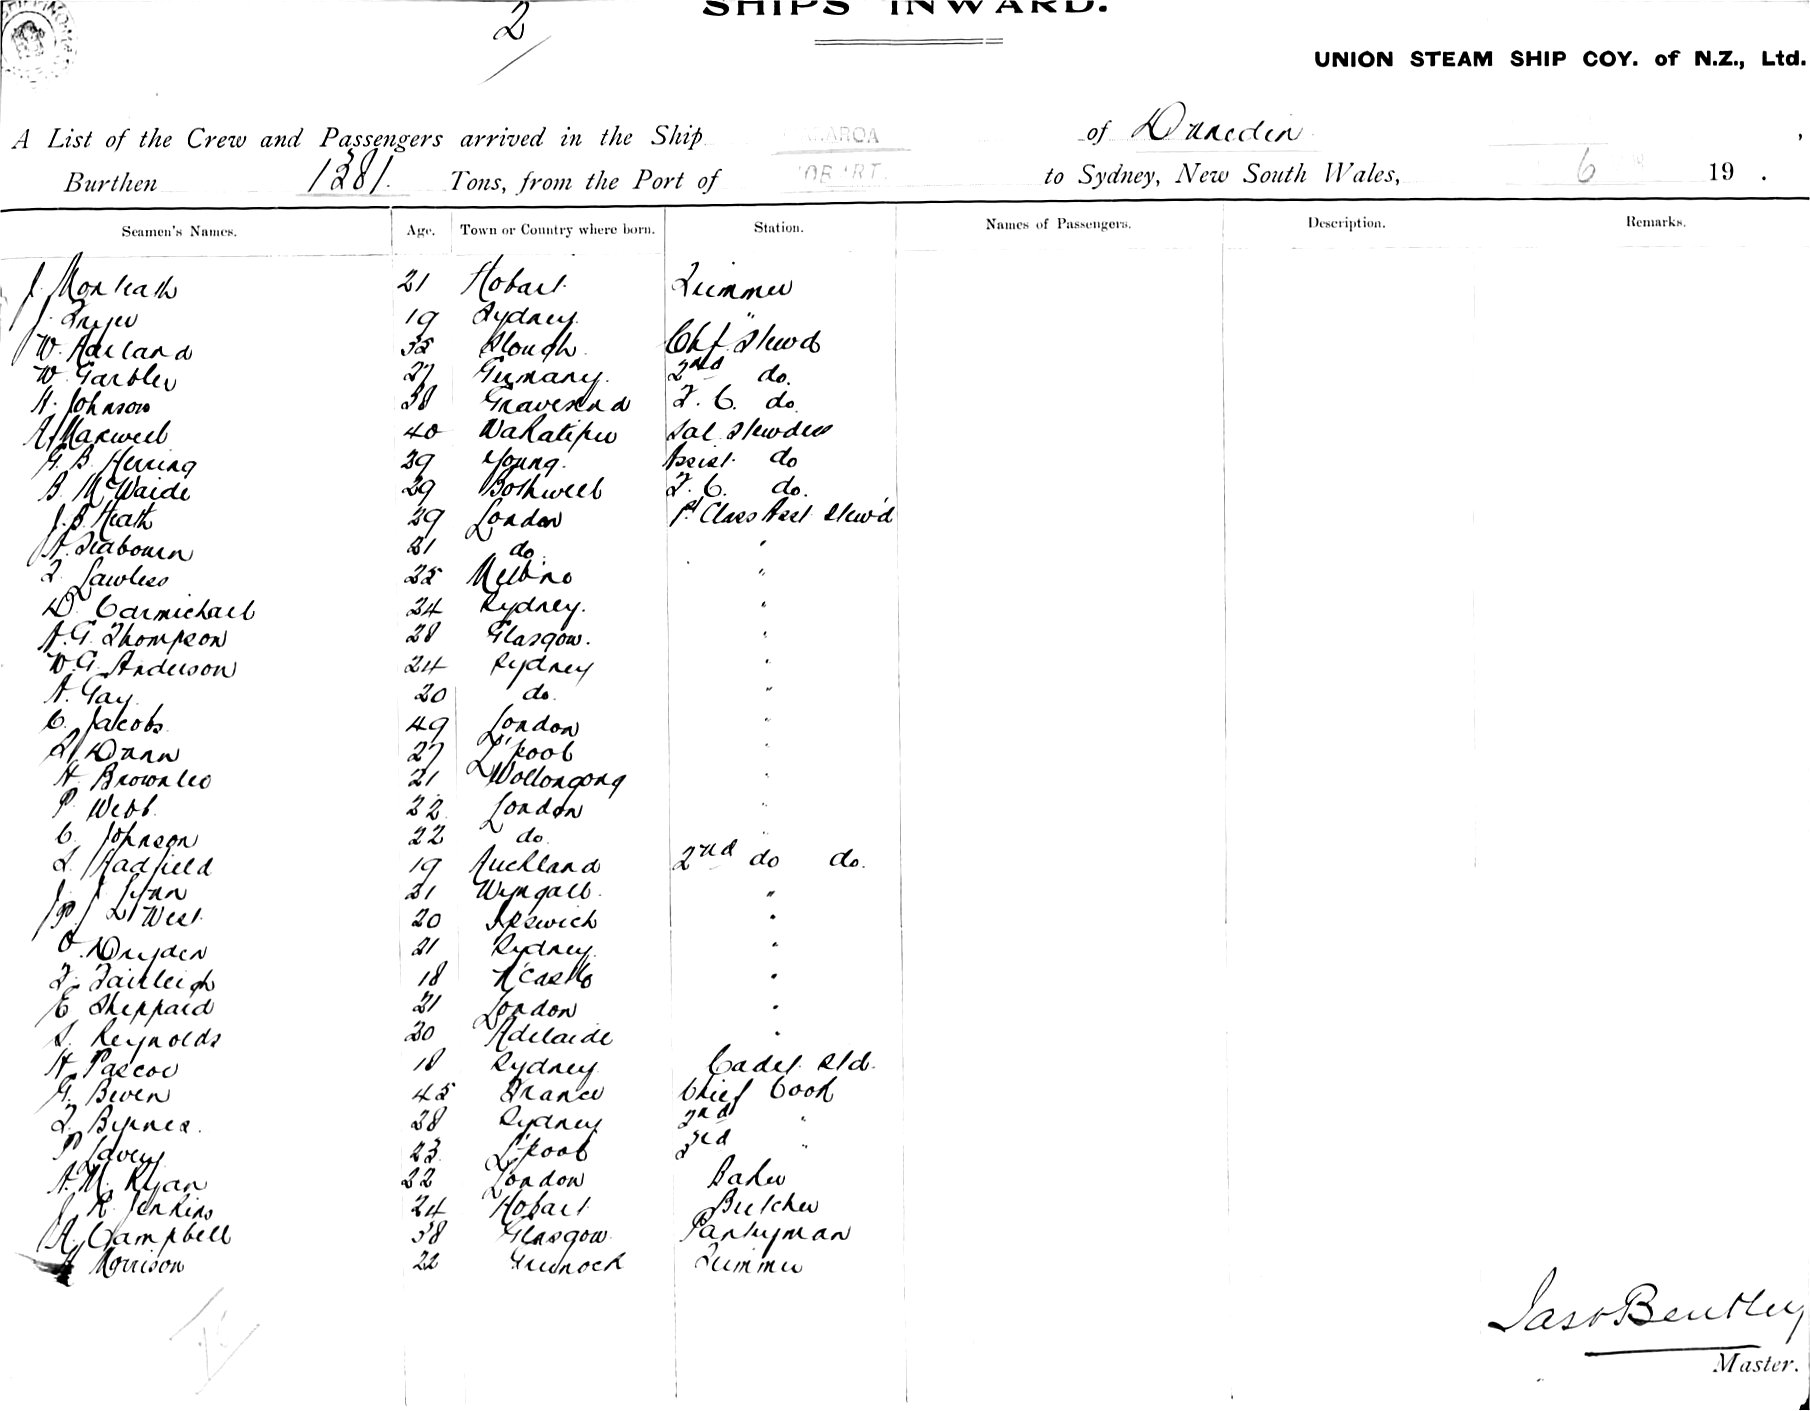 2
SHIPS INWARD.
UNION STEAM SHIP COY. of N.Z., Ltd.
A List of the Crew and Passengers arrived in the Ship of Dunedin ,
Burthen 1381. Tons, from the Port of to Sydney, New South Wales, 6 19 .
Seamen's Names. Age. Town or Country where born. Station. Names of Passengers. Description. Remarks.
J. Monteath 21 Hobart. Trimmer
J. 19 Sydney. "
W. Harland 32 Slough. Chf. Stewd
W. Garbler 27 Germany. 2nd do.
H. Johnson 38 Gravesend F. C. do.
A. Maxwell 40 Wakatipu Sal. Stewdess
G. B. Herring 29 Young. Assist. do
B. McWaide 29 Bothwell F. C. do.
J. B. Heath 29 London 1st Class Asst Stew'd
A. Seabourn 21 do. "
T. Lawless 25 Melb'ne "
D. Carmichael 24 Sydney. "
A. G. Thompson 28 Glasgow. "
W. G. Anderson 24 Sydney "
A. Gay. 20 do. "
C. Jacobs. 49 London "
R. Dunn 27 L'pool "
H. Brownlee 21 Wollongong "
P. Webb. 22 London "
C. Johnson 22 do. "
L. Hadfield 19 Auckland 2nd do do.
J. J. Lynn 21 "
P. J. L. West. 20 Ipswich "
O. Dryden 21 Sydney. "
F. Fairleigh 18 N'Castle "
E. Sheppard 21 London "
S. Reynolds 20 Adelaide "
H. Pascoe 18 Sydney. Cadet. Std.
G. Beven 45 France Chief Cook
T. Byrnes. 28 Sydney 2nd "
P. Lavery 23. L'pool 3rd "
A. M. Ryan 22 London Baker
J. R. Jenkins 24 Hobart. Butcher
A. Campbell 38 Glasgow. Pantryman
Morrison 22 Greenock Trimmer
Jas. Bentley
Master.